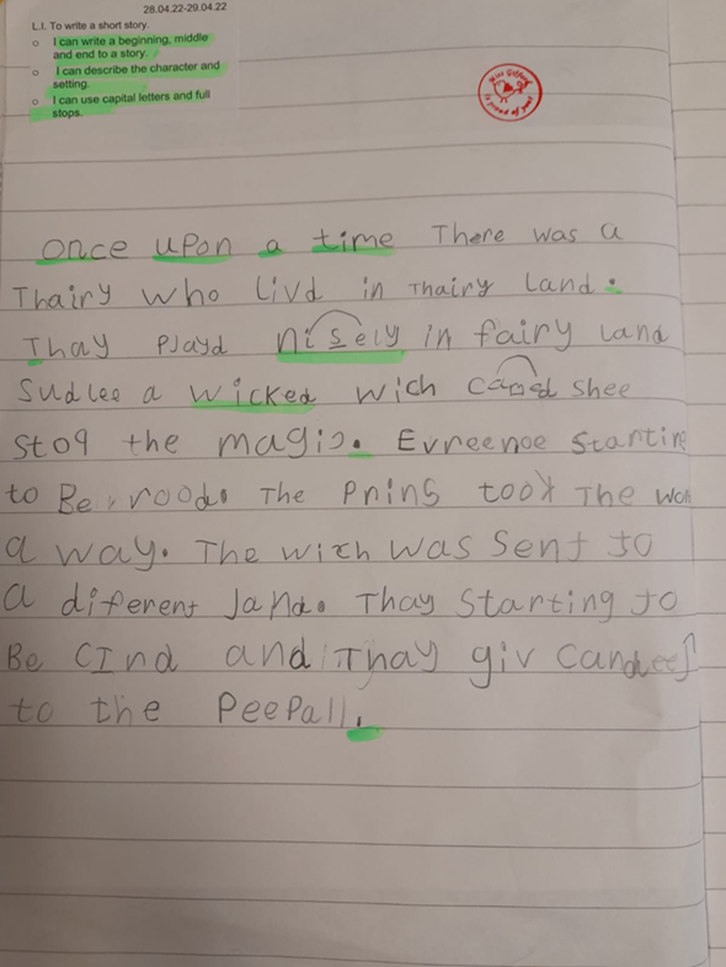 28.04.22-29.04.22
L.I. To write a short story.
o I can write a beginning, middle
and end to a story.
o I can describe the character and
setting.
o I can use capital letters and full
stops.
Miss
is proud of you!
once upon a time There was a
Thairy who livd in Thairy land.
Thay Playd nisely in fairy land
Sudlee a wicked wich camed shee
stoq the magic. Evreenoe startine
to Be rood. The Prins took The won
a way. The wich was sent to
a diferent land. Thay starting to
Be CInd and Thay giv candees
to the PeePall.